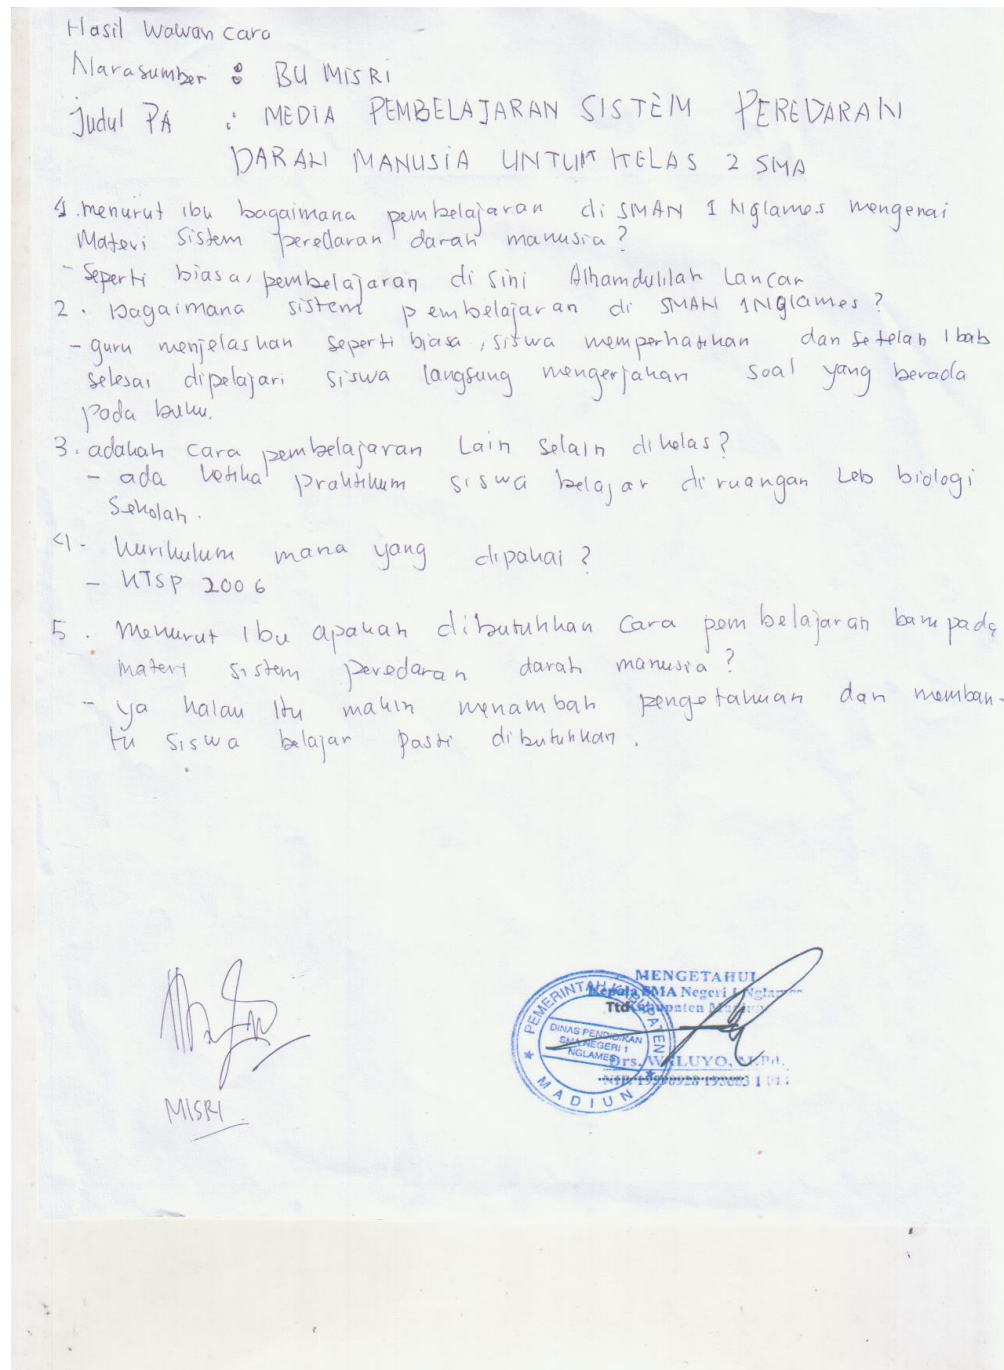 Hasil Wawancara
Narasumber : BU MISRI
Judul PA : MEDIA PEMBELAJARAN SISTEM PEREDARAN
DARAH MANUSIA UNTUK KELAS 2 SMA
1. menurut ibu bagaimana pembelajaran di SMAN 1 Nglames mengenai
Materi Sistem peredaran darah manusia?
- Seperti biasa, pembelajaran di sini Alhamdulilah Lancar
2. bagaimana sistem pembelajaran di SMAN 1 Nglames?
- guru menjelaskan seperti biasa, siswa memperhatikan dan setelah 1 bab
selesai dipelajari siswa langsung mengerjakan soal yang berada
pada buku.
3. adakah cara pembelajaran Lain selain dikelas?
- ada ketika praktikum siswa belajar diruangan Leb biologi
Sekolah.
4. kurikulum mana yang dipakai?
- KTSP 2006
5. Menurut Ibu apakah dibutuhkan cara pembelajaran baru pada
materi sistem peredaran darah manusia?
- ya kalau itu makin menambah pengetahuan dan memban-
tu siswa belajar pasti dibutuhkan.
MISRI
MENGETAHUI
Kepala SMA Negeri 1 Nglames
Ttd Kabupaten Madiun
Drs. WALUYO, M.Pd.
NIP.
PEMERINTAH KABUPATEN
DINAS PENDIDIKAN
SMA NEGERI 1
NGLAMES
MADIUN